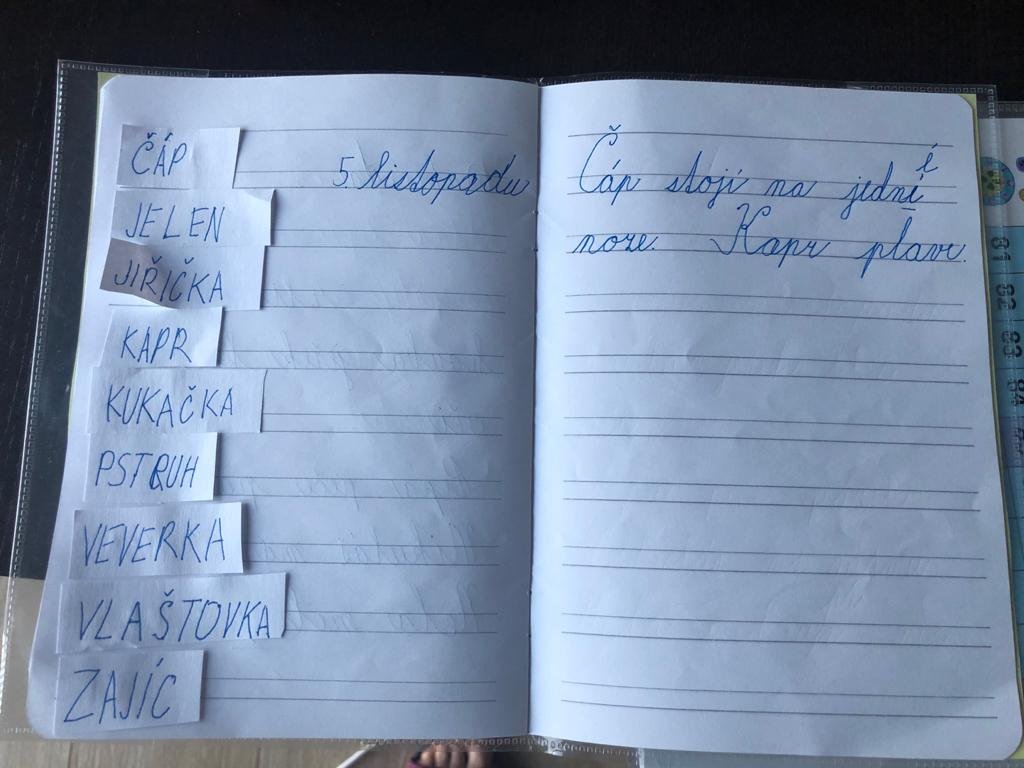 ČÁP
JELEN
JIŘIČKA
KAPR
KUKAČKA
PSTRUH
VEVERKA
VLAŠTOVKA
ZAJÍC
5. listopadu
é
Čáp stojí na jedni
noze. Kapr plave.
81 82 83 84